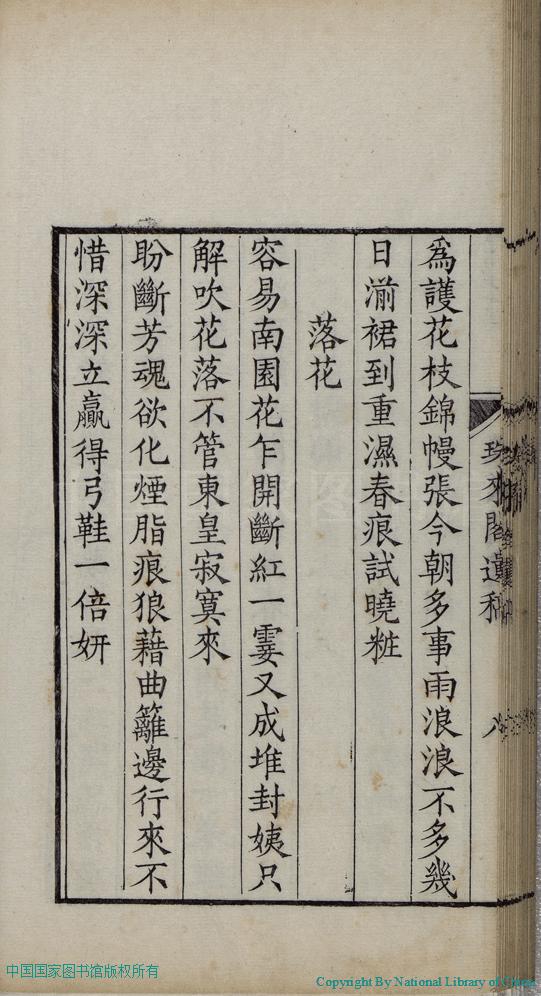 爲護花枝錦幔張今朝多事雨浪浪不多幾
日湔裙到重濕春痕試曉粧
落花
容易南園花乍開斷紅一霎又成堆封姨只
解吹花落不管東皇寂寞來
盼斷芳魂欲化煙脂痕狼藉曲籬邊行來不
惜深深立贏得弓鞋一倍妍
閣遺稿
八
中国国家图书馆版权所有
Copyright By National Library of China